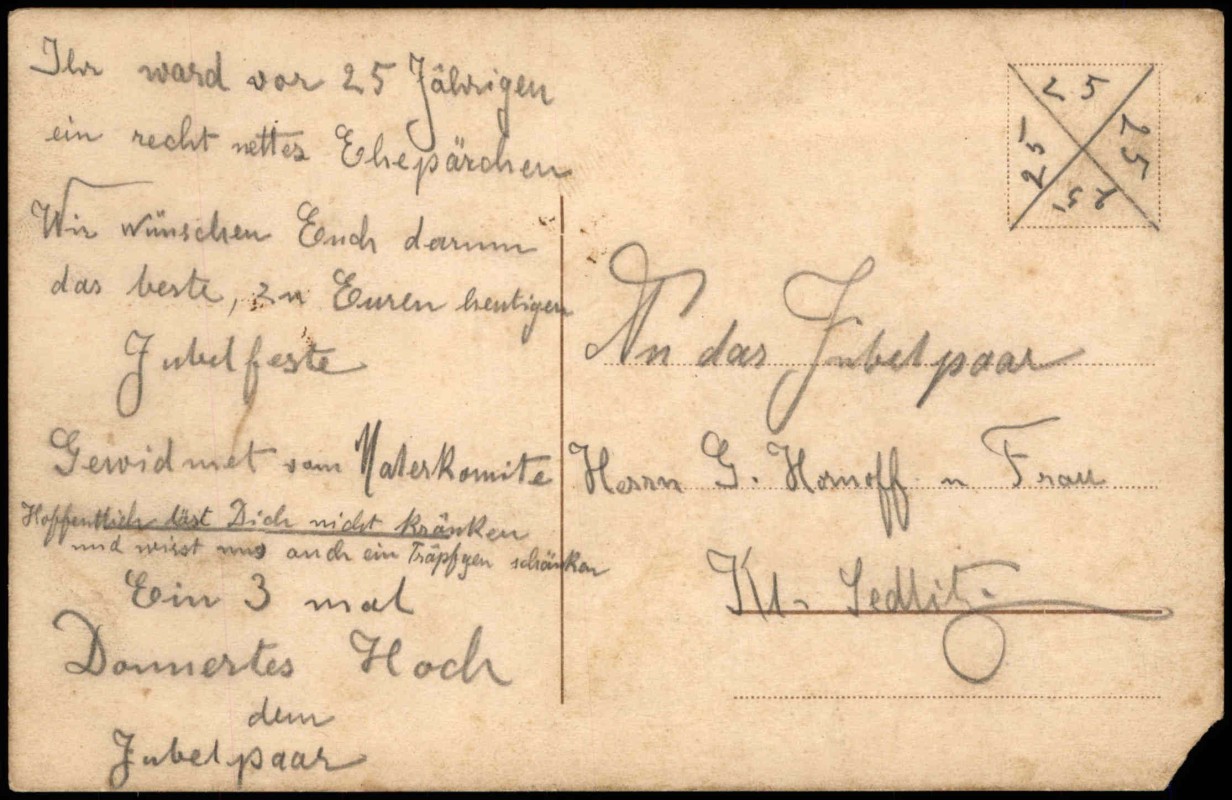 Ihr ward vor 25 Jährigen
ein recht nettes Ehepärchen
Wir wünschen Euch darum
das beste, zu Euren heutigen
Jubelfeste
Gewidmet vom Materkomite
Hoffentlich läst Dich nicht kränken
und wisst uns auch ein Träpfgen schänken
Ein 3 mal
Donnertes Hoch
dem
Jubelpaar
25
25
25
25
An das Jubelpaar
Herrn G. Homoff u Frau
Kl. Sedlitz